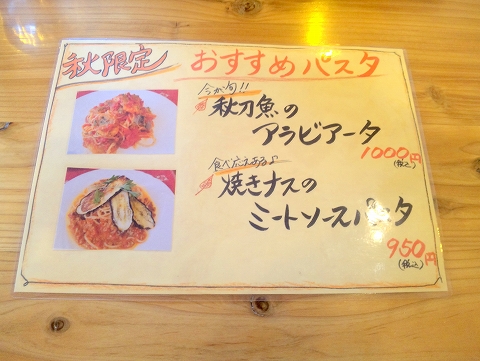 秋限定
おすすめパスタ
今が旬!!
秋刀魚の
アラビアータ
1000円
(税込)
食べ応えある♪
焼きナスの
ミートソースパスタ
950円
(税込)